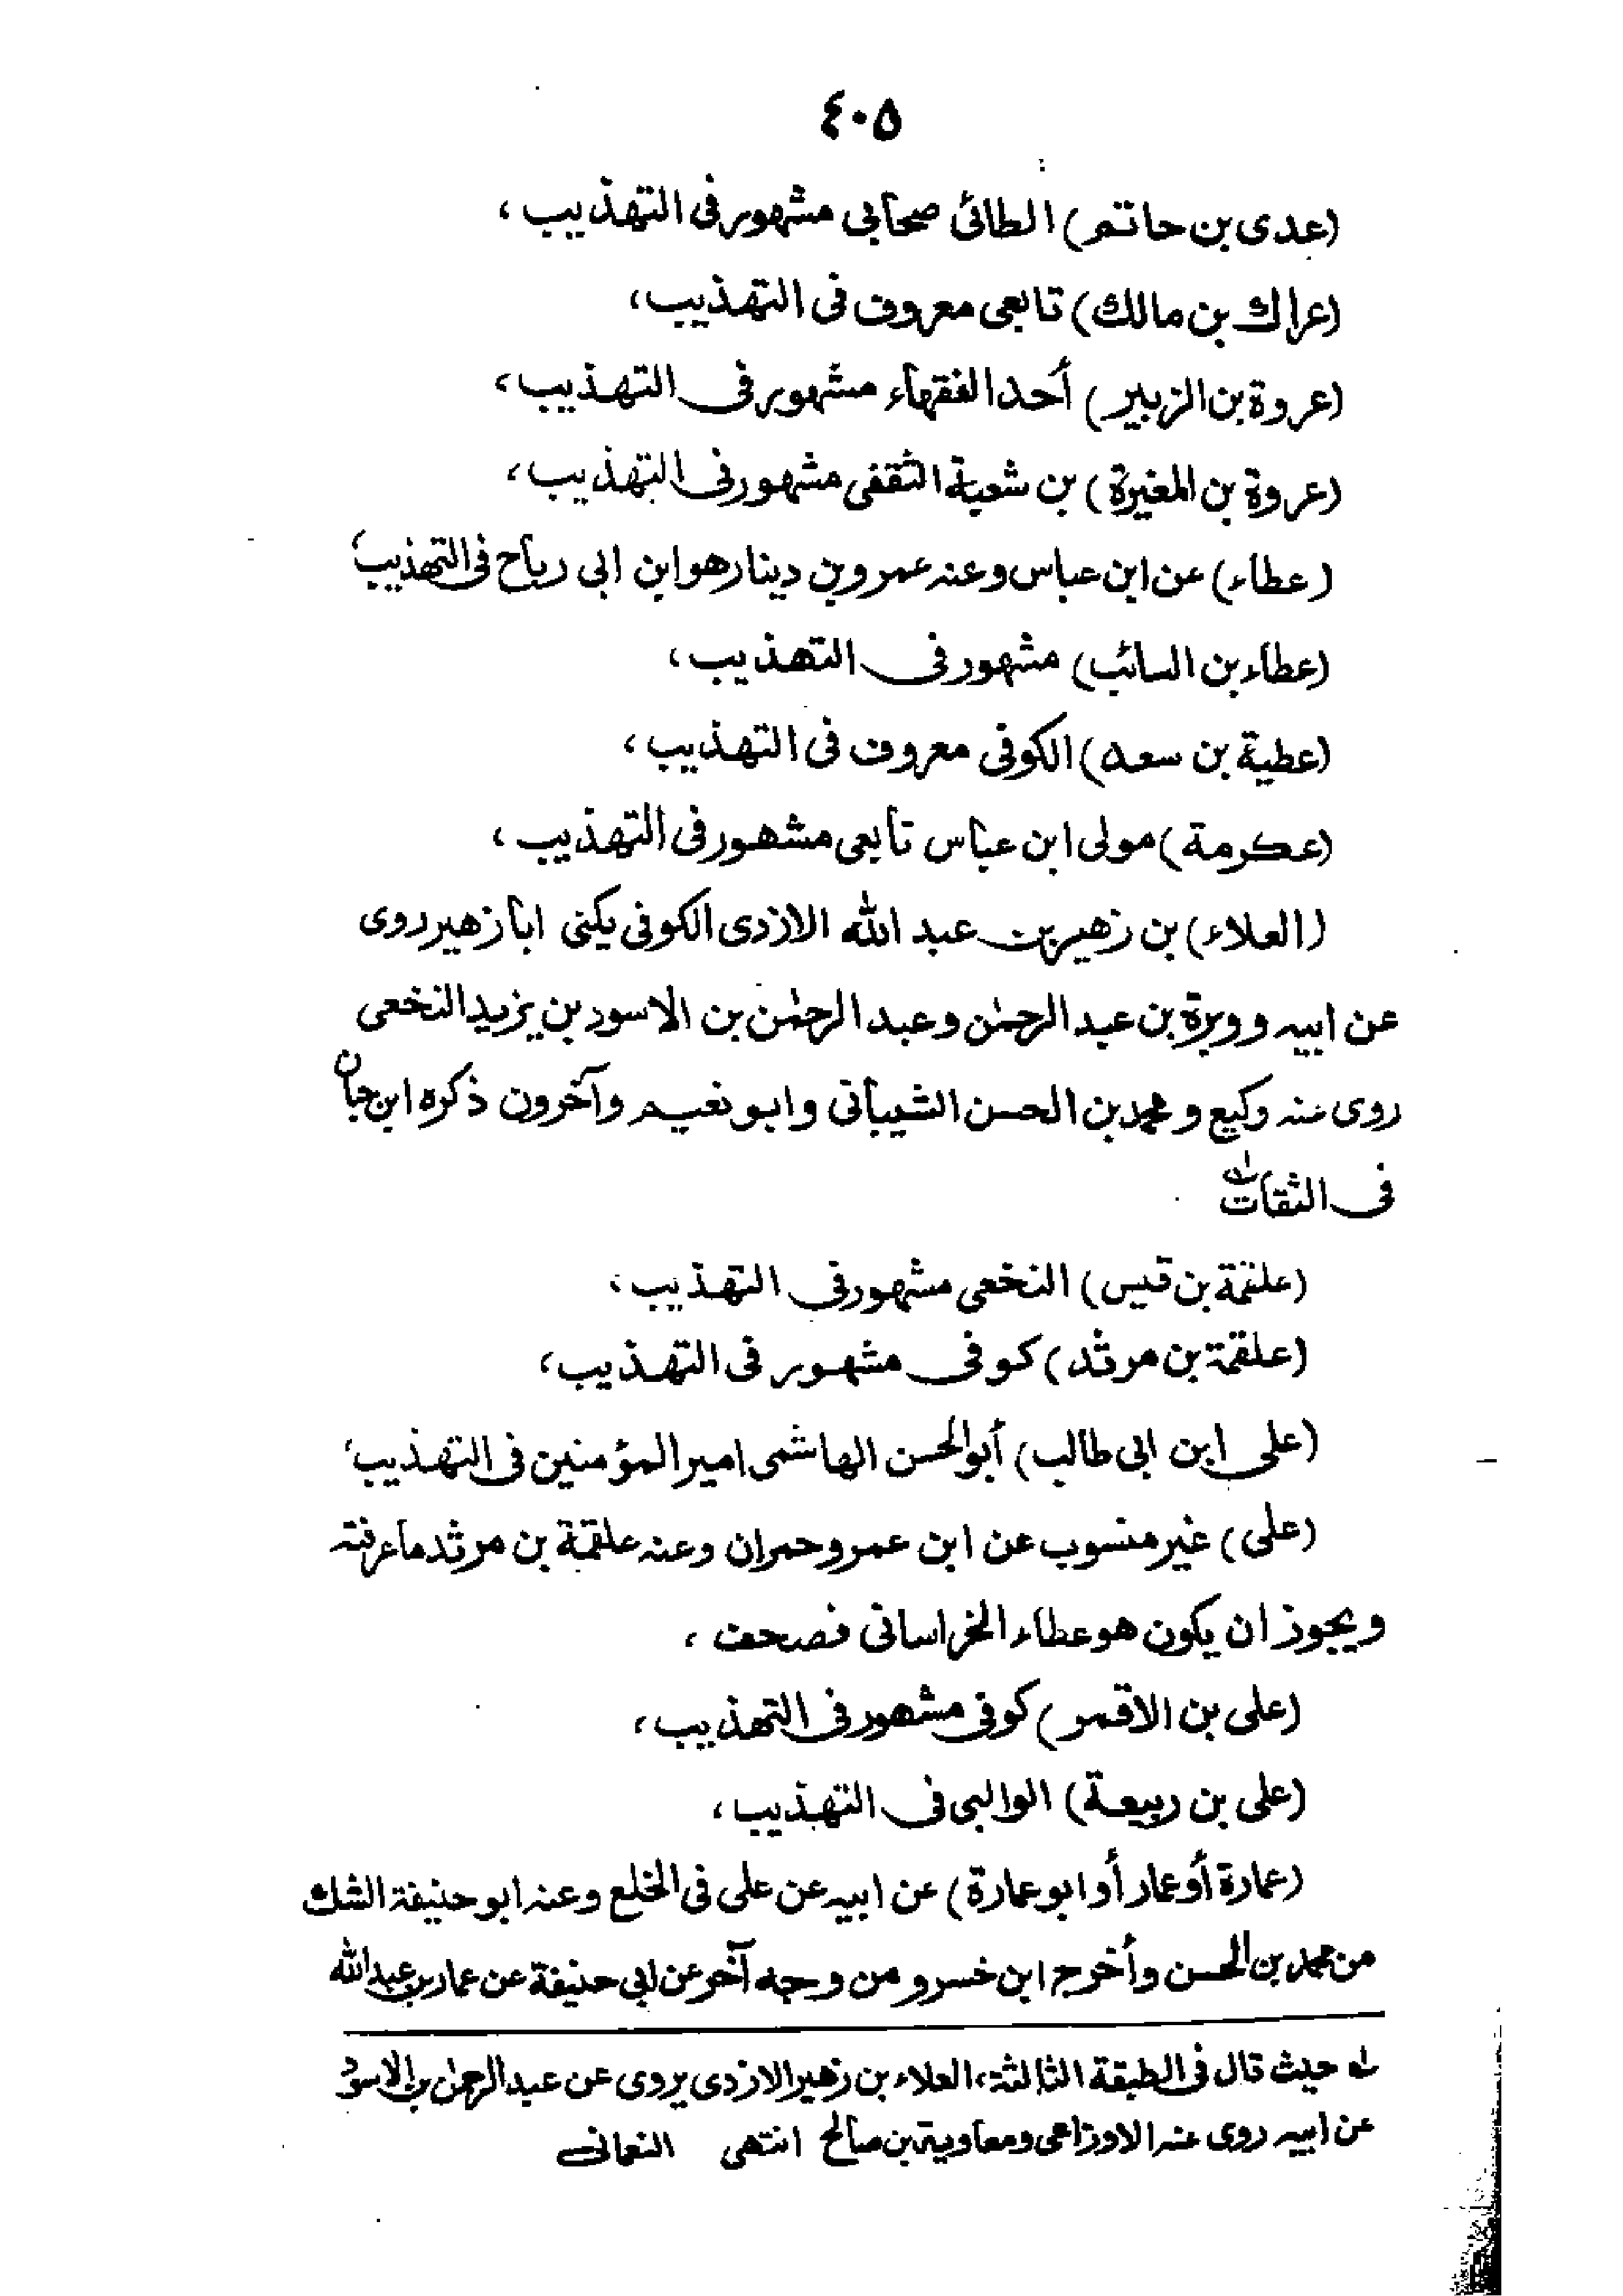 ٤٠٥
(عدى بن حاتم) الطائى صحابى مشهور فى التهذيب،
(عراك بن مالك) تابعى معروف فى التهذيب،
(عروة بن الزبير) أحد الفقهاء مشهور فى التهذيب،
(عروة بن المغيرة) بن شعبة الثقفى مشهور فى التهذيب،
(عطاء) عن ابن عباس وعنه عمرو بن دينار هو ابن ابى رباح فى التهذيب،
(عطاء بن السائب) مشهور فى التهذيب،
(عطية بن سعد) الكوفى معروف فى التهذيب،
(عكرمة) مولى ابن عباس تابعى مشهور فى التهذيب،
(العلاء) بن زهير بن عبد الله الازدى الكوفى يكنى ابا زهير روى
عن ابيه ووبرة بن عبد الرحمٰن وعبد الرحمٰن بن الاسود بن يزيد النخعى
روى عنه وكيع ومحمد بن الحسن الشيبانى وابو نعيم وآخرون ذكره ابن حبان
فى الثقات له
(علقمة بن قيس) النخعى مشهور فى التهذيب،
(علقمة بن مرثد) كوفى مشهور فى التهذيب،
(على ابن ابى طالب) أبو الحسن الهاشمى امير المؤمنين فى التهذيب،
(على) غير منسوب عن ابن عمر وحمران وعنه علقمة بن مرثد ما عرفته
ويجوز ان يكون هو عطاء الخراسانى فصحف،
(على بن الاقمر) كوفى مشهور فى التهذيب،
(على بن ربيعة) الوالبى فى التهذيب،
(عمارة أو عمار أو ابو عمارة) عن ابيه عن على فى الخلع وعنه ابو حنيفة الشك
من محمد بن الحسن وأخرج ابن خسرو من وجه آخر عن ابى حنيفة عن عمار بن عبد الله
له حيث قال فى الطبقة الثالثة، العلاء بن زهير الازدى يروى عن عبد الرحمٰن بن الاسود
عن ابيه روى عنه الاوزاعى ومعاوية بن صالح انتهى النعمانى